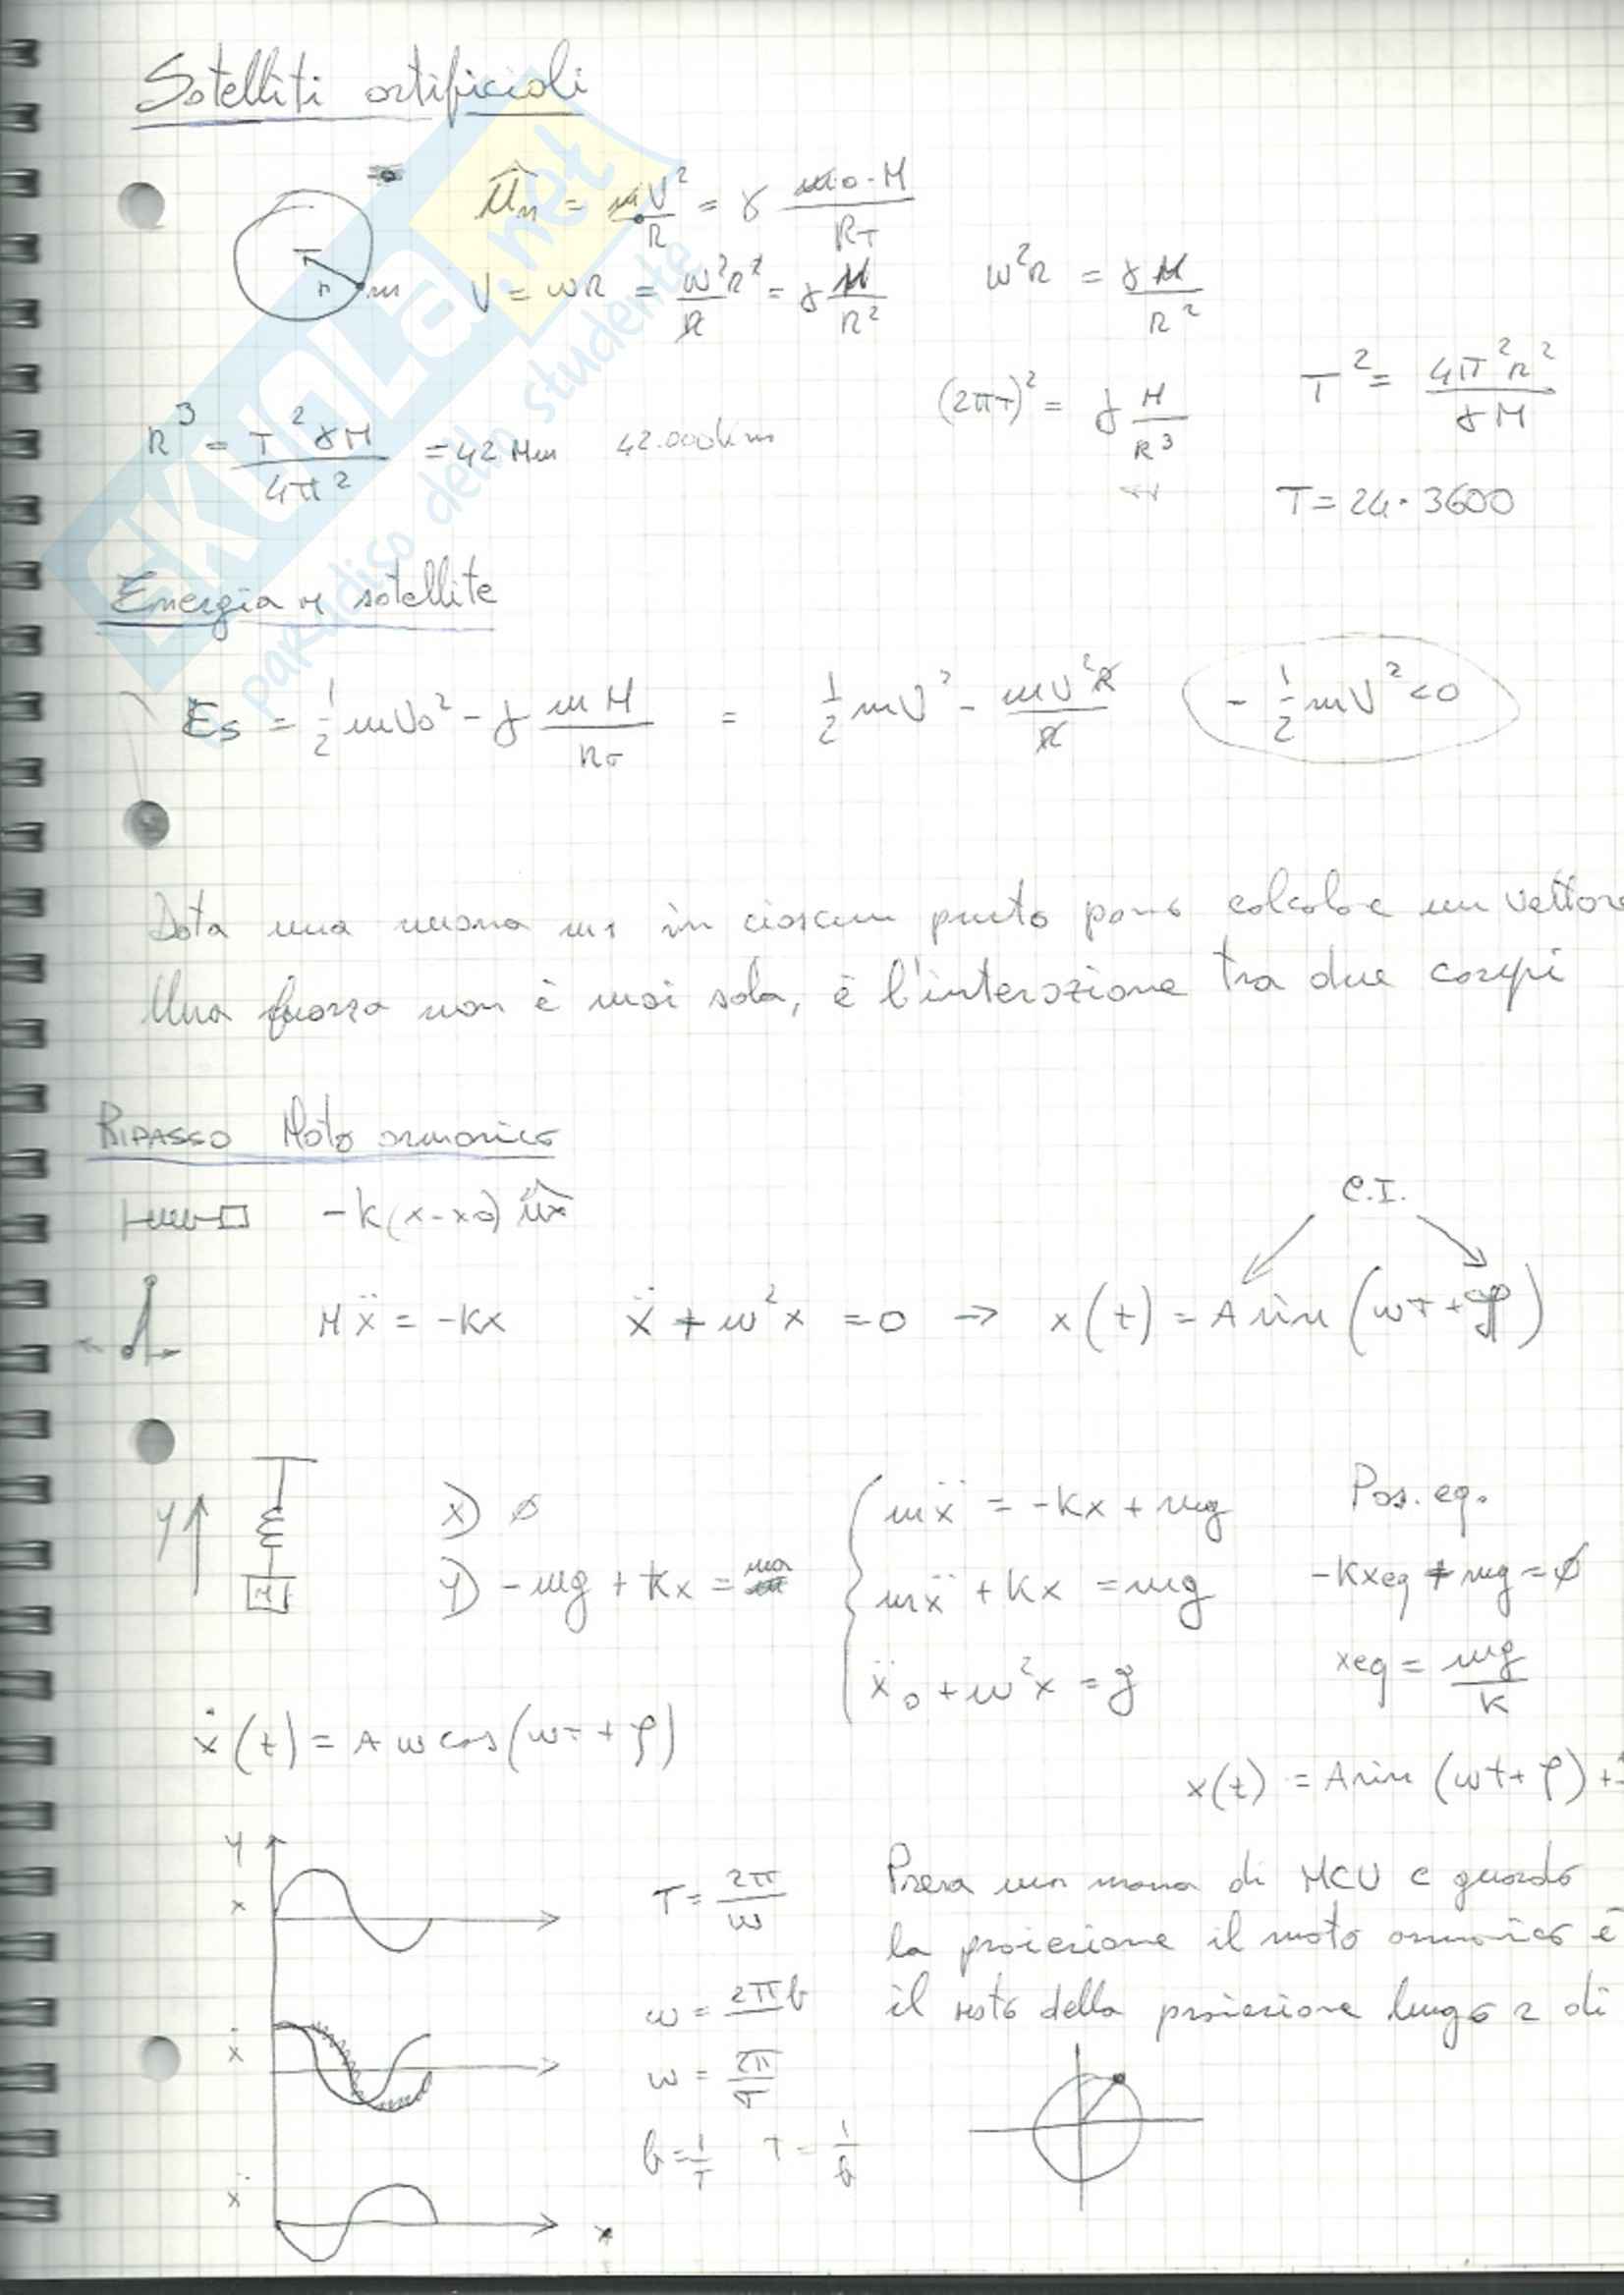 Satelliti artificiali
û_n = mV²/R = γ m₀·M/R_T
T
r m
V = ωR = ω²R²/R = γ M/R²
ω²R = γM/R²
(2πT)² = γ M/R³
T² = 4π²R²/γM
R³ = T²γM/4π² = 42 Mm 42.000 km
T = 24·3600
SKUOLA.net
paradiso dello studente
Energia satellite
Es = 1/2 mV₀² - γ mM/R_T = 1/2 mV² - mV²R/R - 1/2 mV² < 0
Data una massa m₁ in ciascun punto posso calcolare un vettore
Una forza non è mai sola, è l'interazione tra due corpi
RIPASSO Moto armonico
-k(x-x₀) û_x
C.I.
Mẍ = -Kx ẍ + ω²x = 0 → x(t) = A sin (ωt+φ)
y
M
x) ∅
y) -mg + kx = ma
mẍ = -Kx + mg
mẍ + Kx = mg
ẍ₀ + ω²x = g
Pos. eq.
-Kxeq + mg = ∅
xeq = mg/K
ẋ(t) = A ω cos(ωt + φ)
x(t) = A sin (ωt + φ) +
y
x
ẋ
ẍ
T = 2π/ω
ω = 2πf
ω = 2π/T
f = 1/T T = 1/f
Presa una massa di MCU e guardo
la proiezione il moto armonico è
il moto della proiezione lungo r di
x